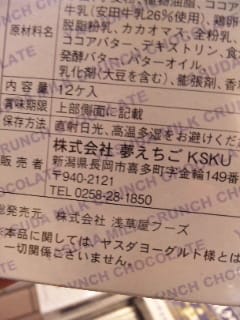 植物油脂、ココア
牛乳(安田牛乳26%使用)、鶏卵
原材料名 脱脂粉乳、カカオマス、全粉乳
ココアバター、デキストリン、食
発酵バター、バターオイル、
乳化剤(大豆を含む)、膨張剤、香料
内容量 12ケ入
賞味期限 上部側面に記載
保存方法 直射日光、高温多湿をお避けくだ
販売者 株式会社 夢えちご KSKU
新潟県長岡市喜多町字金輪149番
〒940-2121
TEL 0258-28-1850
総発売元 株式会社 浅草屋フーズ
※本品に関しては、ヤスダヨーグルト様とは
一切関係ございません。